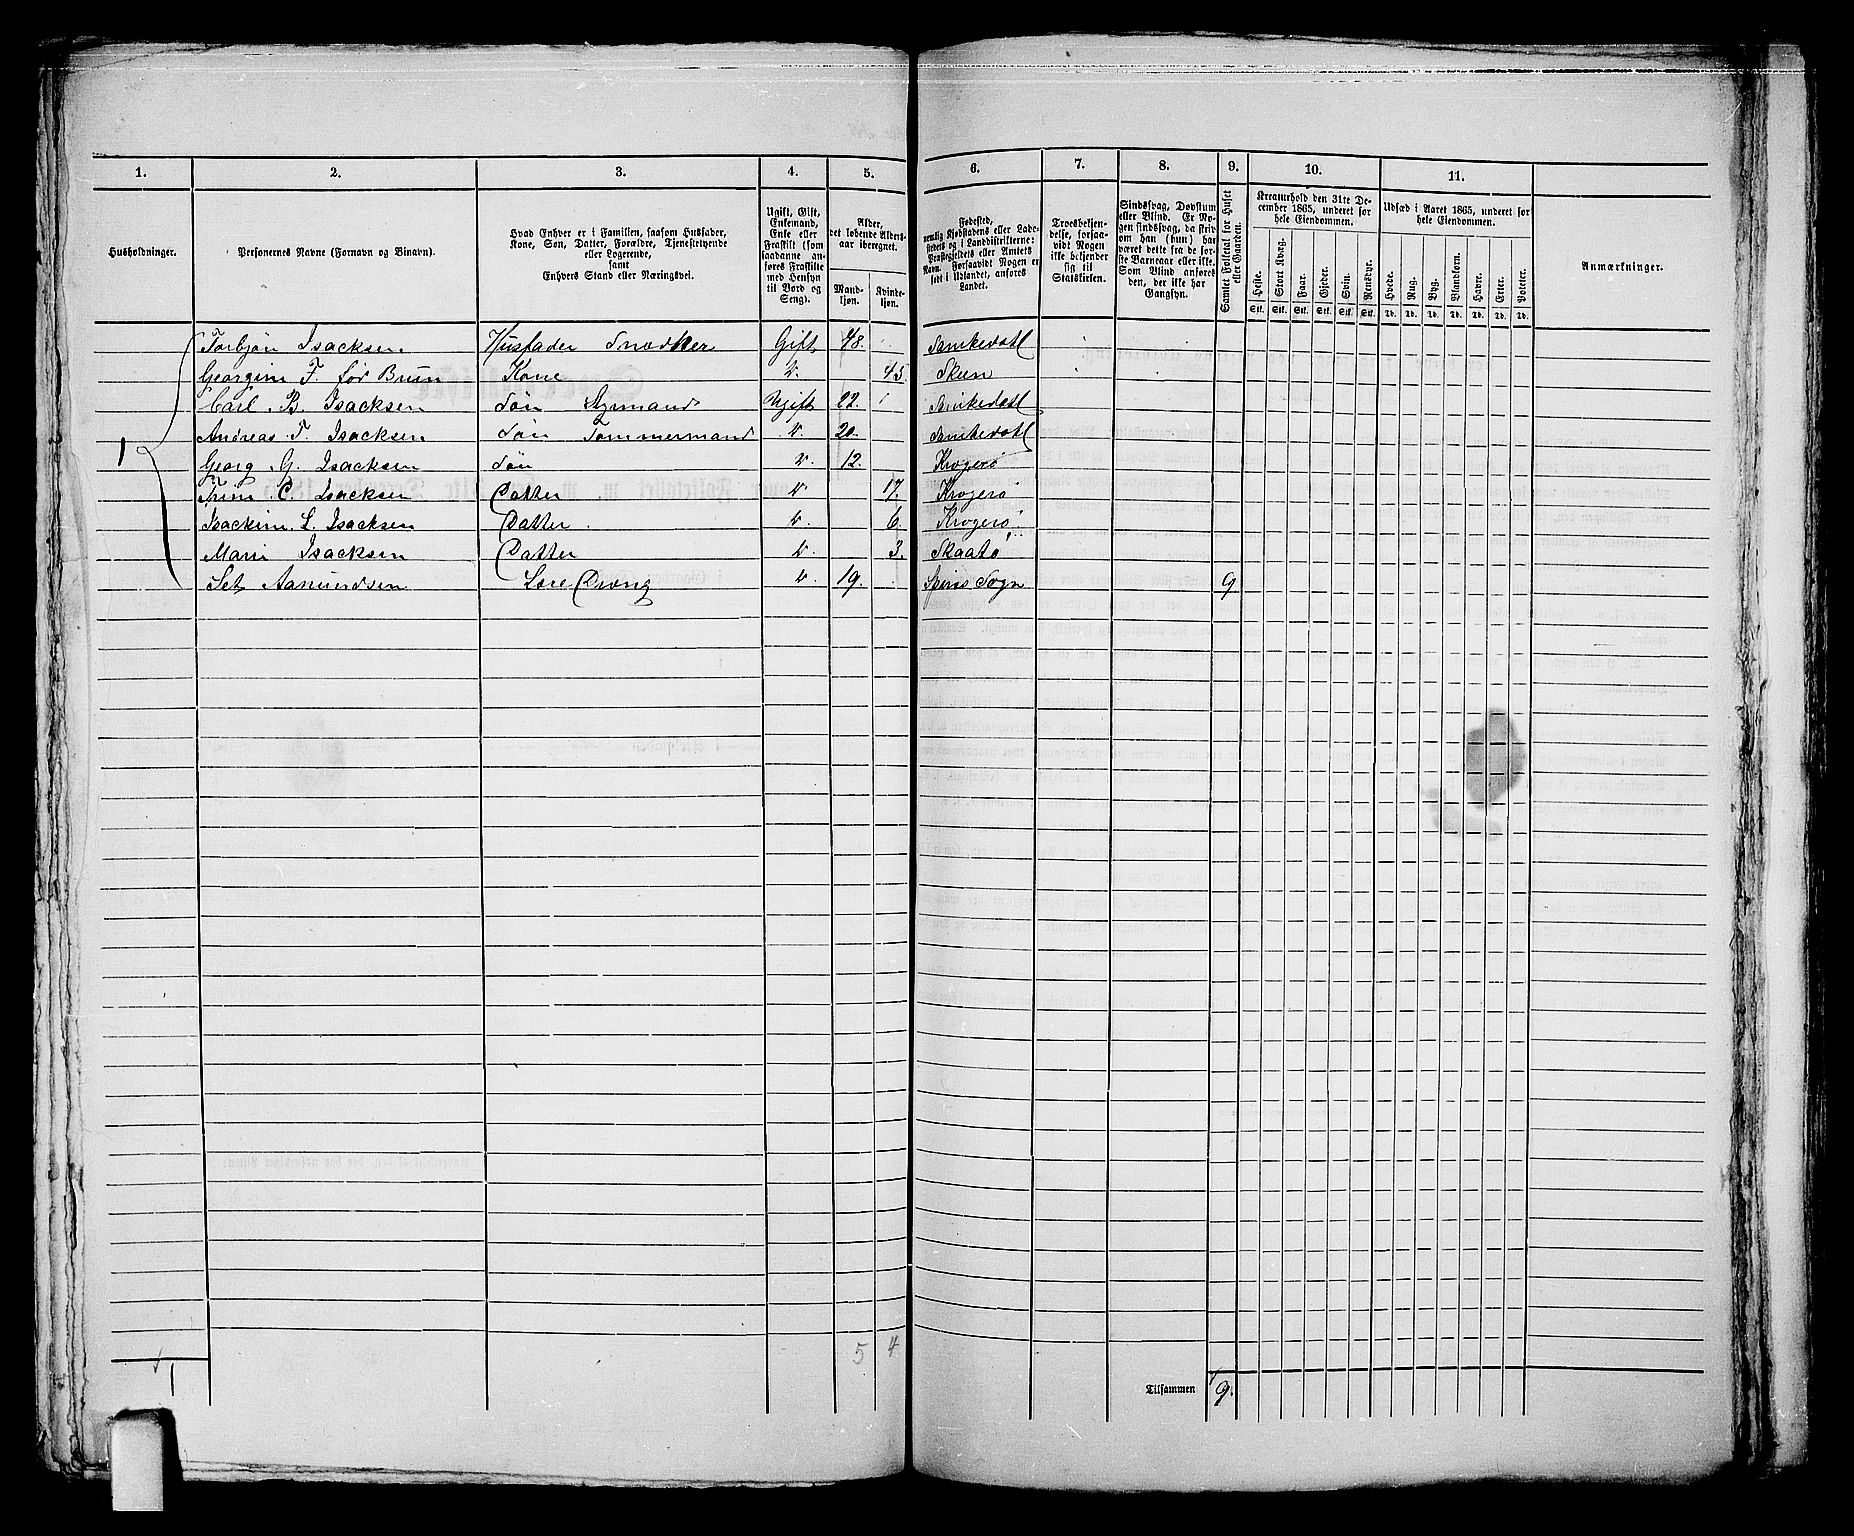 1. 2. 3. 4. 5. 6. 7. 8. 9. 10. 11.
Husholdninger.
Personernes Navne (Fornavn og Binavn).
Hvad Enhver er i Familien, saasom Husfader,
Kone, Søn, Datter, Forældre, Tjenestetyende
eller Logerende,
samt
Enhvers Stand eller Næringsvei.
Ugift, Gift,
Enkemand,
Enke eller
Fraskilt (som
saadanne an-
føres Fraskilte
med Hensyn
til Bord og
Seng).
Alder,
det løbende Alders-
aar iberegnet.
Mand-
kjøn.
Kvinde-
kjøn.
Fødested,
nemlig Kjøbstadens eller Lade-
stedets og i Landdistrikterne:
Præstegjeldets eller Amtets
Navn. Forsaavidt Nogen er
født i Udlandet, anføres
Landet.
Troesbekjen-
delse, forsaa-
vidt Nogen
ikke bekjender
sig til
Statskirken.
Sindssvag, Døvstum
eller Blind. Er No-
gen sindssvag, da skriv
om han (hun) har
været dette fra de før-
ste Barneaar eller ikke.
Som Blind anføres
den, der ikke har
Gangsyn.
Samlet Folketal for Huset
eller Gaarden.
Kreaturhold den 31te De-
cember 1865, underet for
hele Eiendommen.
Heste. Stort Kvæg. Faar. Gjeder. Svin. Rensdyr.
Stk. Stk. Stk. Stk. Stk. Stk.
Udsæd i Aaret 1865, underet for
hele Eiendommen.
Hvede. Rug. Byg. Blandkorn. Havre. Erter. Poteter.
Td. Td. Td. Td. Td. Td. Td.
Anmærkninger.
1
Torbjön Isacksen. Husfader Snedker Gift 48. Sanikedatl
Georgine F. för Brun Kone v. 45. Skien
Carl. B. Isacksen Sön Symand Ugift 22. Sanikedatl
Andreas T. Isacksen Sön Tømmermand v. 20. Sanikedatl
Georg G. Isacksen Sön v. 12. Krogerö
Trine C. Isacksen Datter v 17. Krogerö
Isackine L. Isacksen Datter. v. 6. Krogerö
Marie Isacksen Datter v. 3. Skaatö
Set Aamundsen Lære Dreng v 19. Sogn 9
5 4
1
Tilsammen 9.